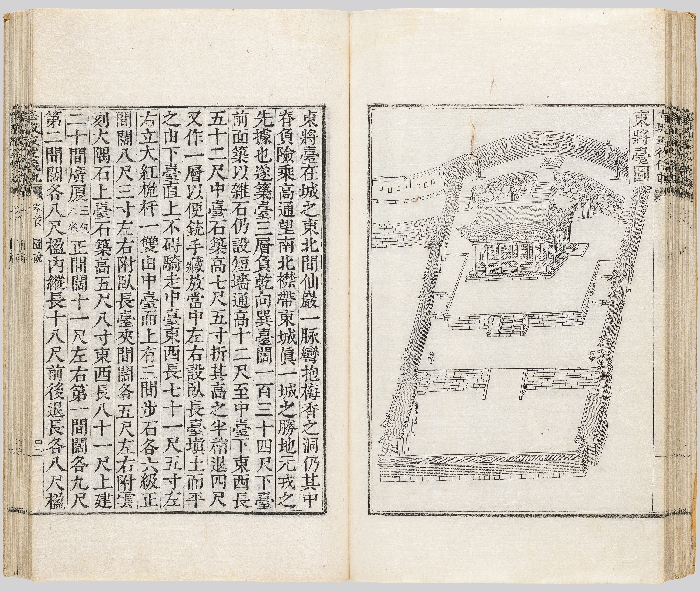 東將臺圖
東將臺在城之東北間仙巖一脉彎抱梅香之洞仍其中
脊負險乘高通望南北襟帶東城眞一城之勝地元戎之
先據也遂築臺三層負乾向巽臺闊一百三十四尺下臺
前面築以雜石仍設短墻通高十二尺至中臺下東西長
五十二尺中臺石築高七尺五寸折其高之半稍退四尺
又作一層以便銃手藏放當中左右設臥長臺塡土而平
之由下臺直上不碍騎走中臺東西長七十一尺五寸左
右立大紅桅杆一雙由中臺而上有三間涉石各六級正
間闊八尺三寸左右附臥長臺夾間闊各五尺左右附雲
刻大隅石上臺石築高五尺八寸東西長八十一尺上建
二十間廣厦 正間闊十一尺左右第一間闊各九尺
第二間闊各八尺楹內縱長十八尺前後退長各八尺楹